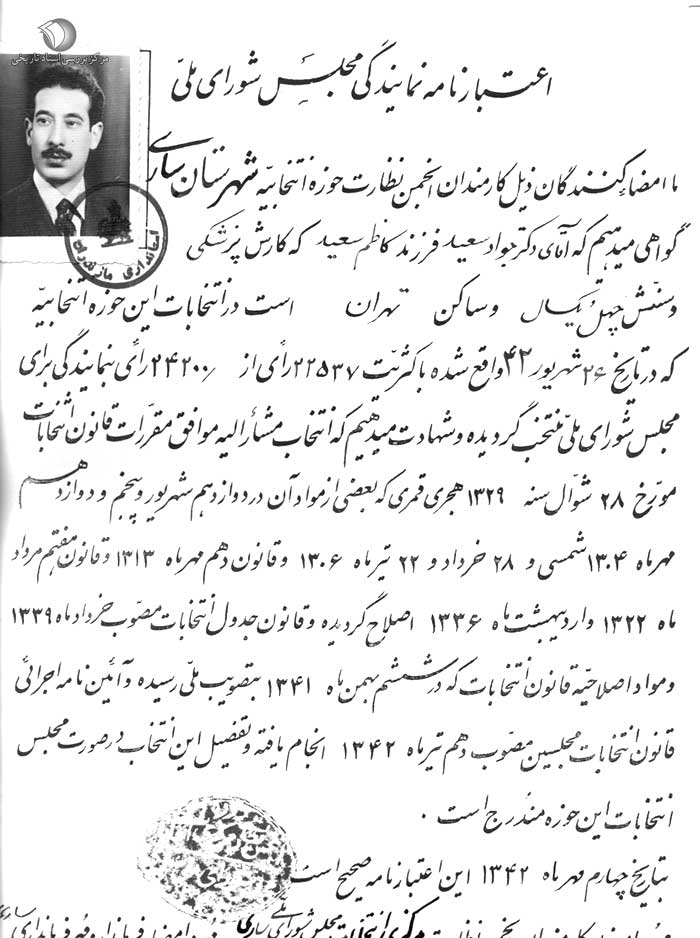 مرکز بررسی اسناد تاریخی
اعتبارنامه نمایندگی مجلس شورای ملّی
ما امضاء کنندگان ذیل کارمندان انجمن نظارت حوزه انتخابیه شهرستان ساری
گواهی میدهیم که آقای دکتر جواد سعید فرزند کاظم سعید که کارش پزشکی
و سنّش چهل و یکسال و ساکن تهران است در انتخابات این حوزه انتخابیه
که در تاریخ ۲۶ شهریور ۴۲ واقع شده با کثریّت ۲۲۵۳۷ رأی از ۲۴۲۰۰ رأی بنمایندگی برای
مجلس شورای ملّی منتخب گردیده و شهادت میدهیم که انتخاب مشارٌالیه موافق مقرّرات قانون انتخابات
مورّخ ۲۸ شوّال سنه ۱۳۲۹ هجری قمری که بعضی از مواد آن در دوازدهم شهریور و پنجم و دوازدهم
مهرماه ۱۳۰۴ شمسی و ۲۸ خرداد و ۲۲ تیرماه ۱۳۰۶ و قانون دهم مهرماه ۱۳۱۳ و قانون هفتم مرداد
ماه ۱۳۲۲ و اردیبهشت ماه ۱۳۳۶ اصلاح گردیده و قانون جدول انتخابات مصوّب خرداد ماه ۱۳۳۹
و مواد اصلاحیّه قانون انتخابات که در ششم بهمن ماه ۱۳۴۱ بتصویب ملّی رسیده و آئین نامه اجرائی
قانون انتخابات مجلسین مصوّب دهم تیرماه ۱۳۴۲ انجام یافته و تفضیل این انتخاب در صورت مجلس
انتخابات این حوزه مندرج است .
بتاریخ چهارم مهرماه ۱۳۴۲ این اعتبارنامه صحیح است
استانداری مازندران